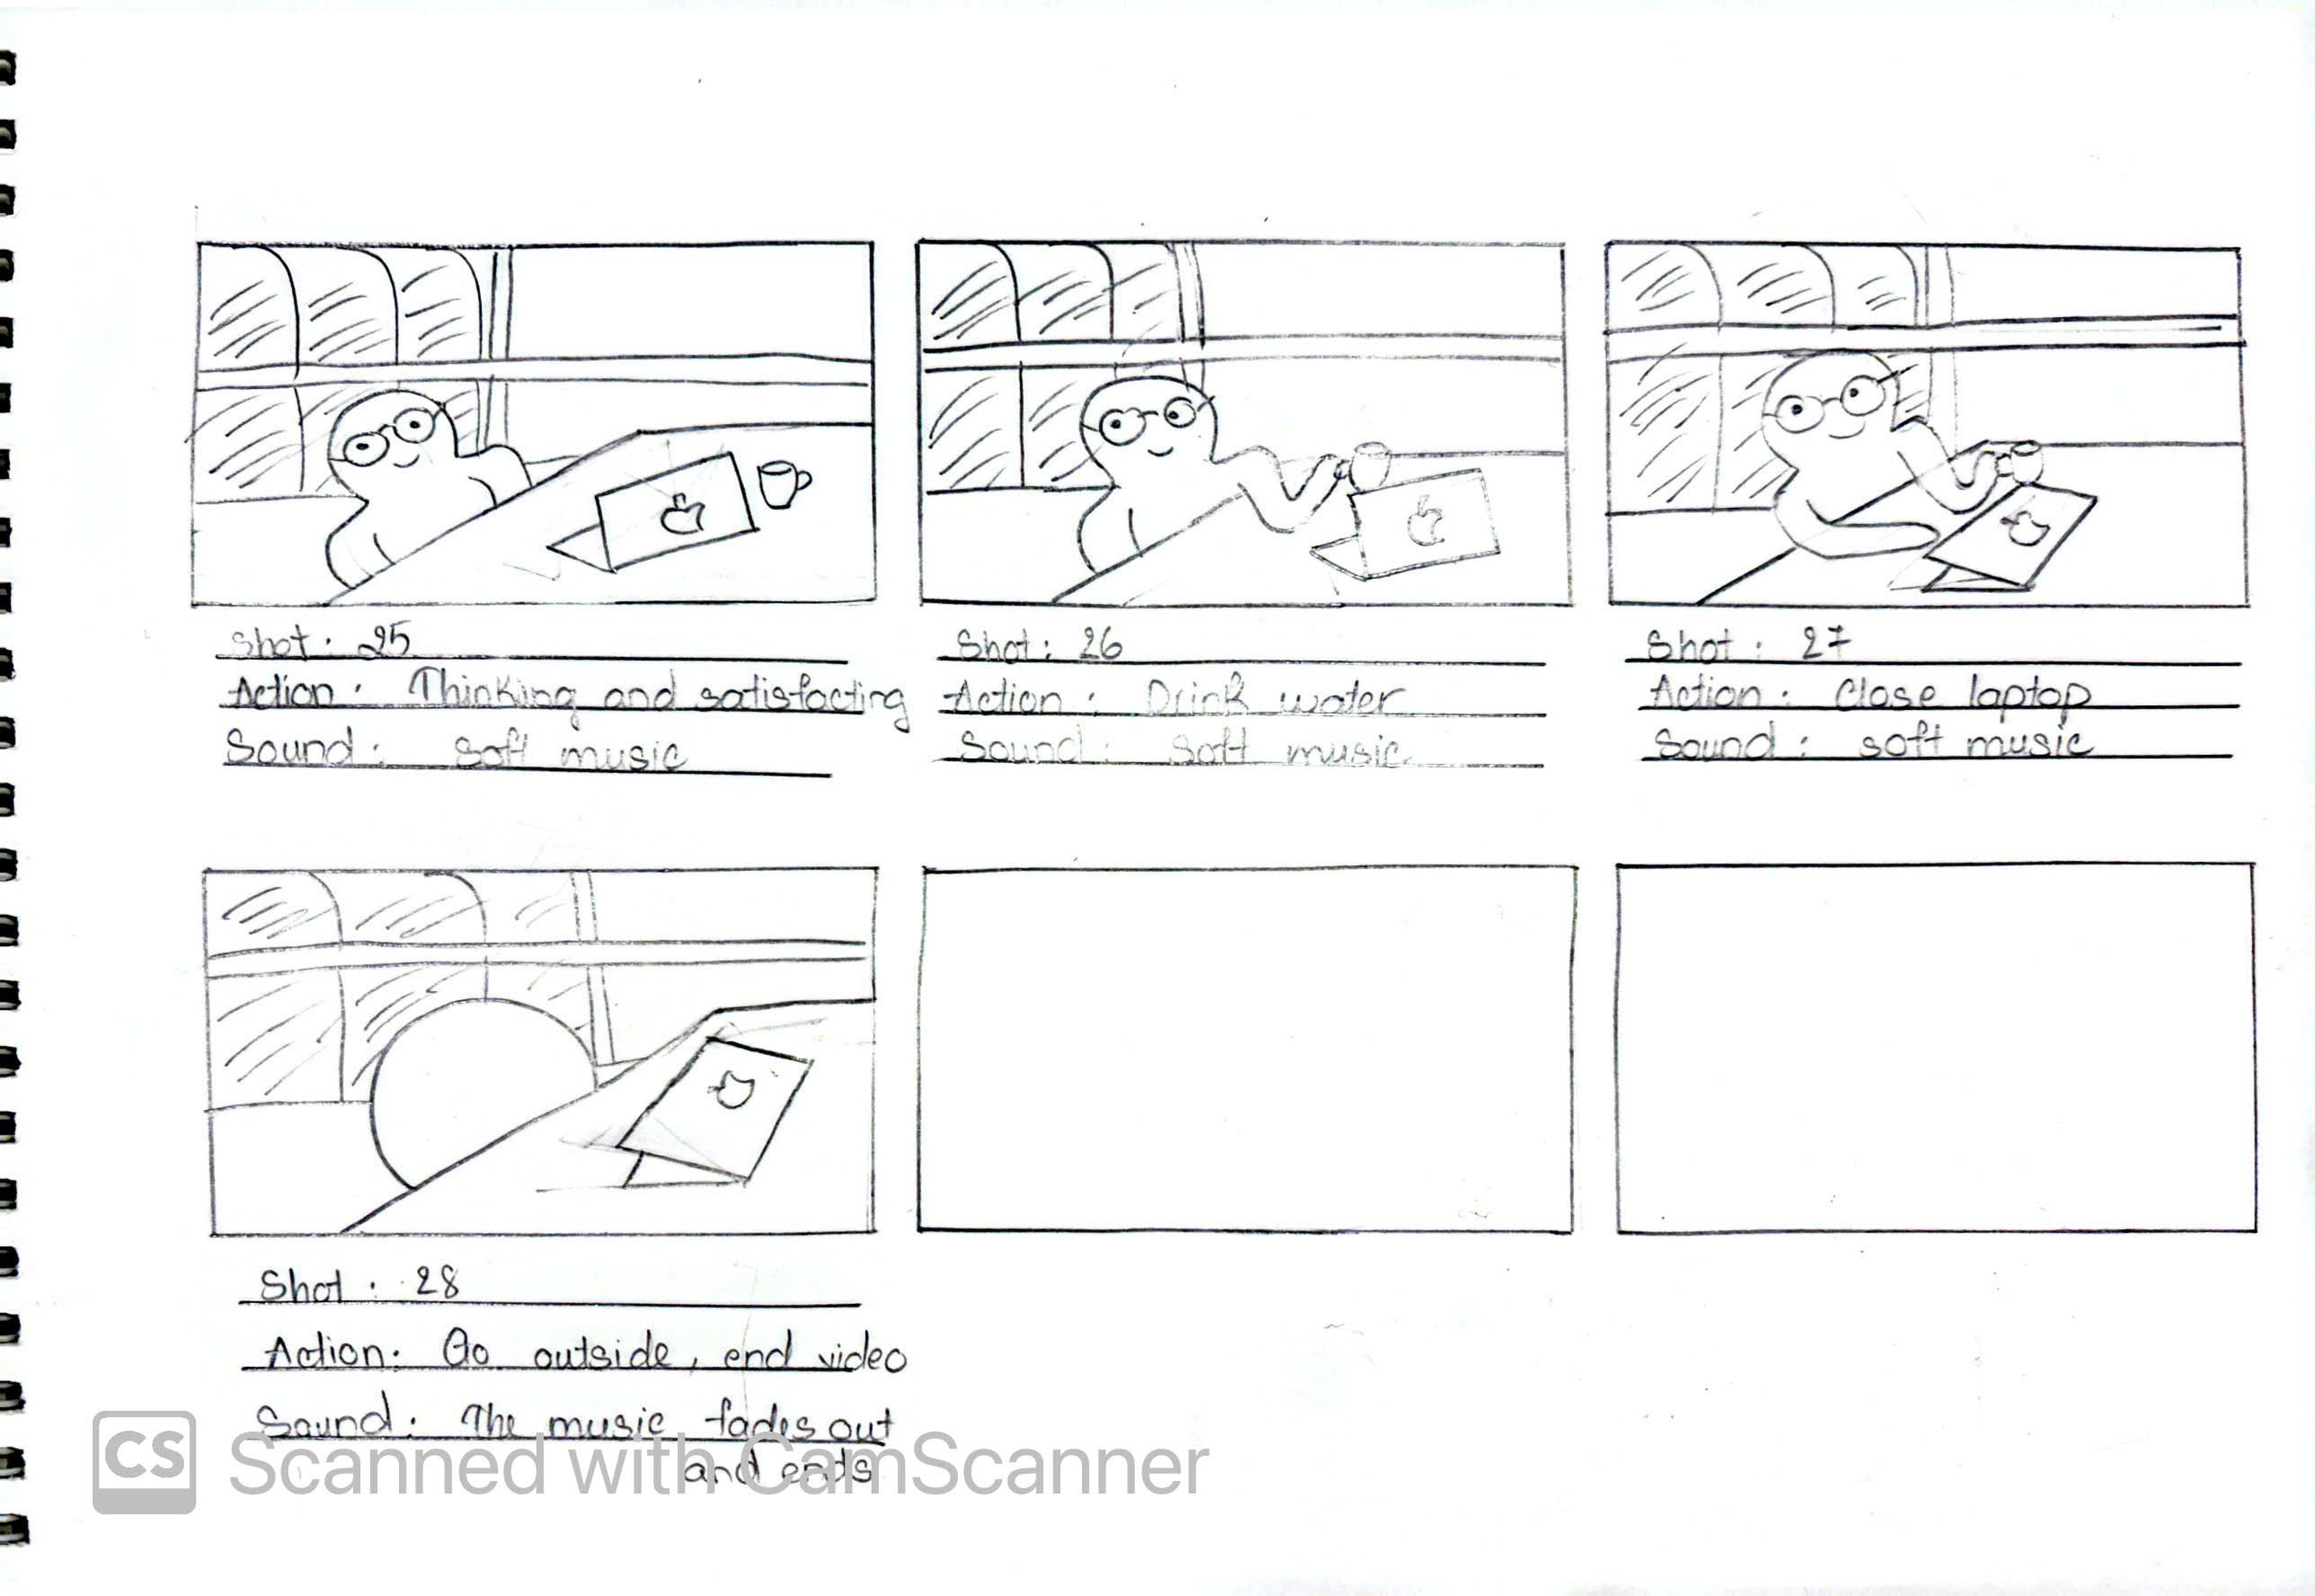 Shot : 25
Action : Thinking and satisfacting
Sound : Soft music
Shot : 26
Action : Drink water
Sound : Soft music
Shot : 27
Action : Close laptop
Sound : soft music
Shot : 28
Action : Go outside, end video
Sound : The music fades out
and ends
CS Scanned with CamScanner